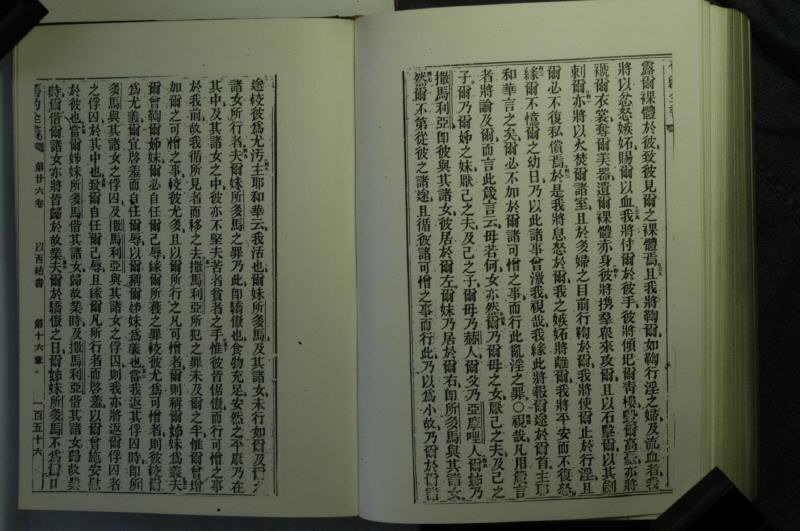 露爾裸體於彼致彼見爾之裸體焉且我將鞫爾如鞫行淫之婦及流血者我
將以忿怒嫉妬賜爾以血我將付爾於彼手彼將傾圮爾靑樓毀爾高臺亦將
褫爾衣裳奪爾美器遺爾裸體亦身彼將携羣衆來攻爾且以石擊爾以其劍
刺爾亦將以火焚爾諸室且於多婦之目前行鞫於爾我將使爾止於行淫且
爾必不復私償焉於是我將息怒於爾我之嫉妬將離爾我將平安而不復怒
緣爾不憶爾之幼日乃以此諸事曾激我視哉我緣此將報爾途於爾首主耶
和華言之矣爾必不加於爾諸可憎之事而行此亂淫之罪○視哉凡用箴言
者將諭及爾而言此箴言云母若何女亦然爾乃爾母之女厭己之夫及己之
子爾乃爾姊之妹厭己之夫及己之子爾母乃赫人爾父乃亞摩哩人爾姊乃
撒馬利亞卽彼與其諸女彼居於爾左爾妹乃居於爾右卽所多馬與其諸女
然爾不第從彼之諸途且循彼諸可憎之事而行此乃以爲小故乃爾於爾諸
途較彼爲尤汚主耶和華云我活也爾妹所多馬及其諸女未行如爾及爾
諸女所行者夫爾妹所多馬之罪乃此卽驕傲也食物充足安然之平康乃在
其中及其諸女之中彼亦不堅夫苦者貧者之手惟彼皆倨傲而行可憎之事
於我前故我循所見者而移之去撒馬利亞所犯之罪未及爾之半惟爾曾增
加爾之可憎之事較彼尤多且以爾所行之凡可憎者爾則稱爾姊妹爲義夫
爾曾鞫爾姊妹爾必自任爾己辱緣爾所獲之罪較彼尤爲可憎者則彼較爾
爲尤義爾宜啓羞而自任爾辱以爾稱爾姊妹爲義也當我返其俘囚時卽所
多馬與其諸女之俘囚及撒馬利亞與其諸女之俘囚則我亦將返爾俘囚者
之俘囚於其中也致爾自任爾己辱且緣爾凡所行者而啓羞以爾曾施安慰
於彼也當爾姊妹所多馬偕其諸女歸故業時及撒馬利亞偕其諸女歸故業
時爾偕爾諸女亦將皆歸於故業夫爾於驕傲之日爾姊妹所多馬不爲爾口
第廿六卷 以西結書 第十六章 一百五十六